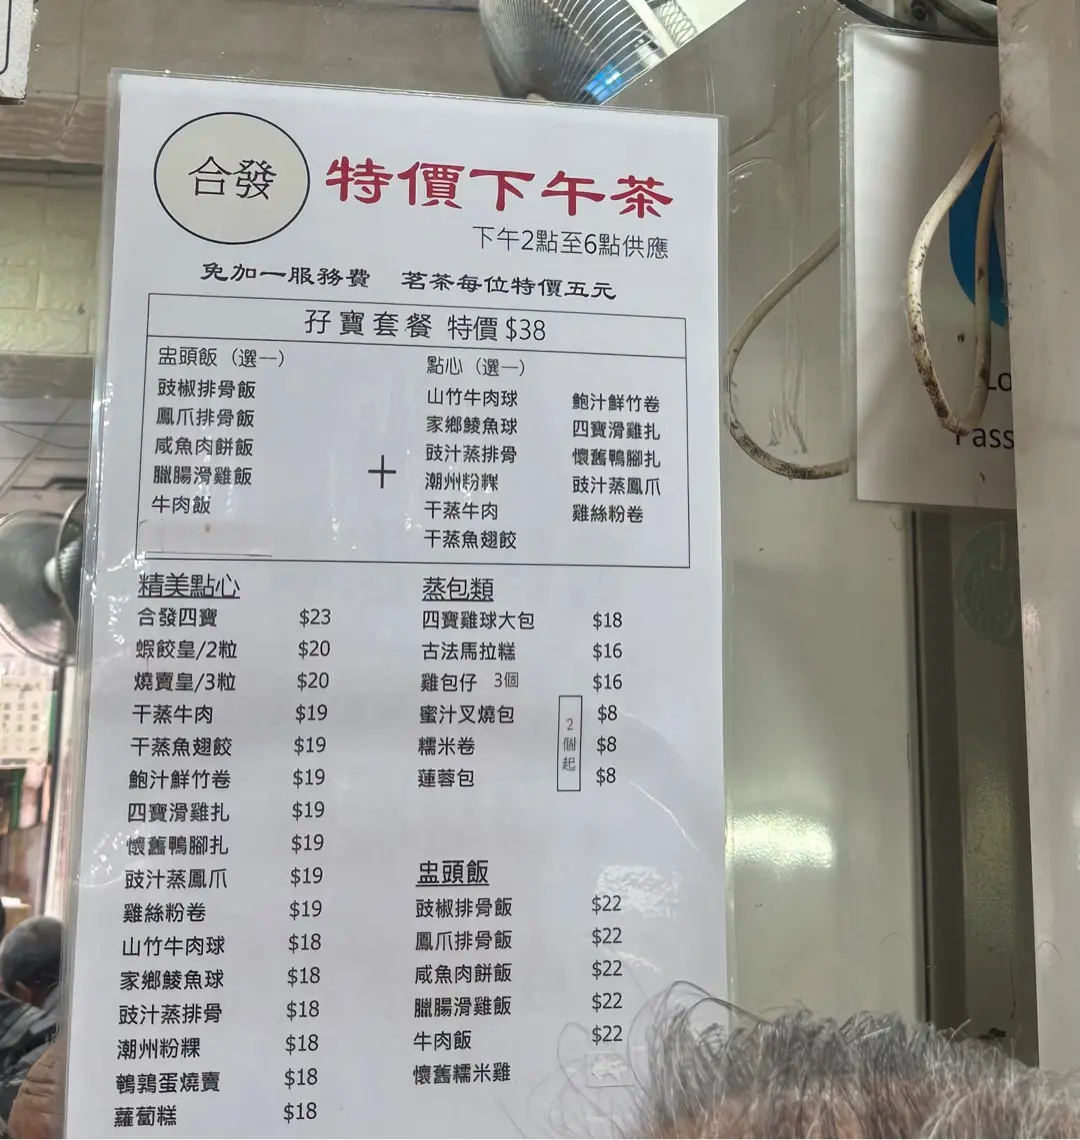 合發
特價下午茶
下午2點至6點供應
免加一服務費 茗茶每位特價五元
孖寶套餐 特價 $38
盅頭飯（選一）
豉椒排骨飯
鳳爪排骨飯
咸魚肉餅飯
臘腸滑雞飯
牛肉飯
+
點心（選一）
山竹牛肉球 鮑汁鮮竹卷
家鄉鯪魚球 四寶滑雞扎
豉汁蒸排骨 懷舊鴨腳扎
潮州粉粿 豉汁蒸鳳爪
干蒸牛肉 雞絲粉卷
干蒸魚翅餃
精美點心
合發四寶 $23
蝦餃皇/2粒 $20
燒賣皇/3粒 $20
干蒸牛肉 $19
干蒸魚翅餃 $19
鮑汁鮮竹卷 $19
四寶滑雞扎 $19
懷舊鴨腳扎 $19
豉汁蒸鳳爪 $19
雞絲粉卷 $19
山竹牛肉球 $18
家鄉鯪魚球 $18
豉汁蒸排骨 $18
潮州粉粿 $18
鵪鶉蛋燒賣 $18
蘿蔔糕 $18
蒸包類
四寶雞球大包 $18
古法馬拉糕 $16
雞包仔 3個 $16
蜜汁叉燒包 $8
糯米卷 $8
蓮蓉包 $8
2個起
盅頭飯
豉椒排骨飯 $22
鳳爪排骨飯 $22
咸魚肉餅飯 $22
臘腸滑雞飯 $22
牛肉飯 $22
懷舊糯米雞
Pass